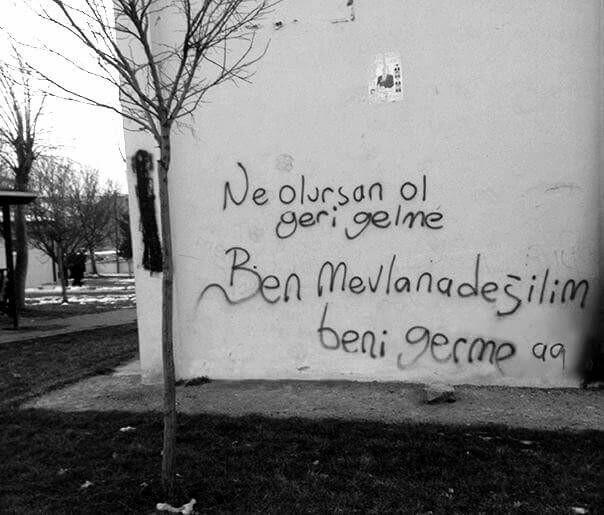 Ne olursan ol
geri gelme
Ben Mevlanadeğilim
beni germe aq